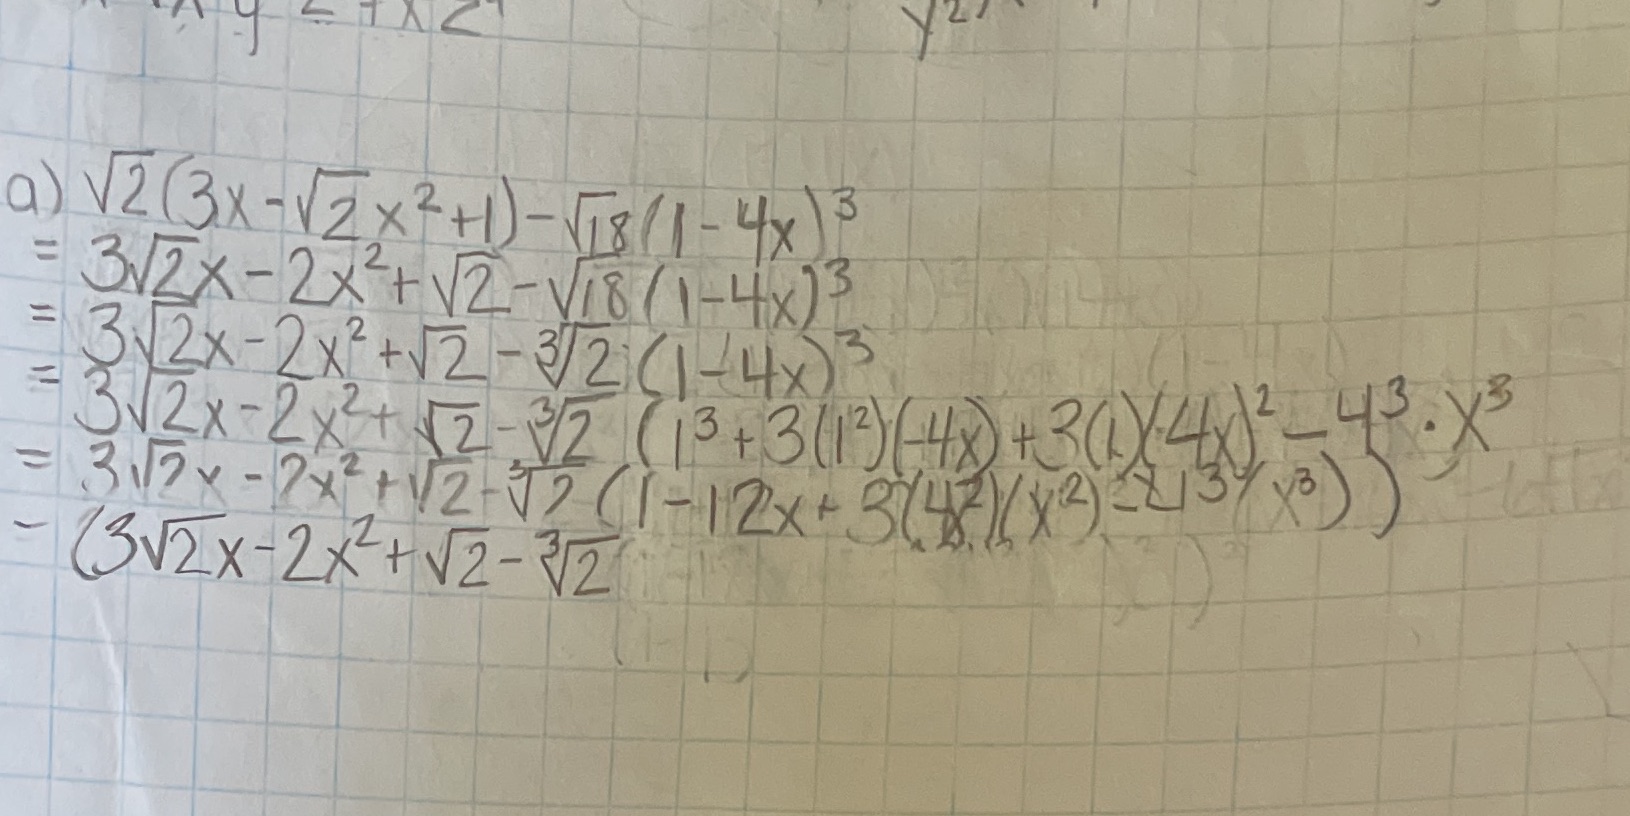 a) √2(3x-√2x²+1)-√18(1-4x)³
= 3√2x-2x²+√2-√18(1-4x)³
= 3√2x-2x²+√2-∛2(1-4x)³
= 3√2x-2x²+√2-∛2(1³+3(1²)(-4x)+3(1)(-4x)²-4³·x³
= 3√2x-2x²+√2-∛2(1-12x+3(4²)(x²)-4³(x³))
- (3√2x-2x²+√2-∛2